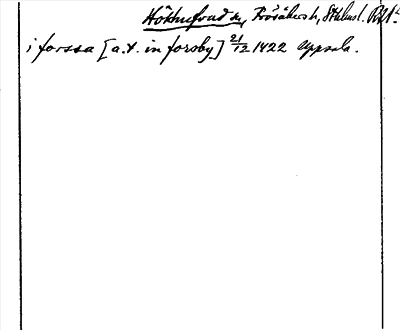 Hökhufvud sn, Frösåkers h, Sthlms l.
i forssa [a.t. in forsby] 21/12 1422 Uppsala.